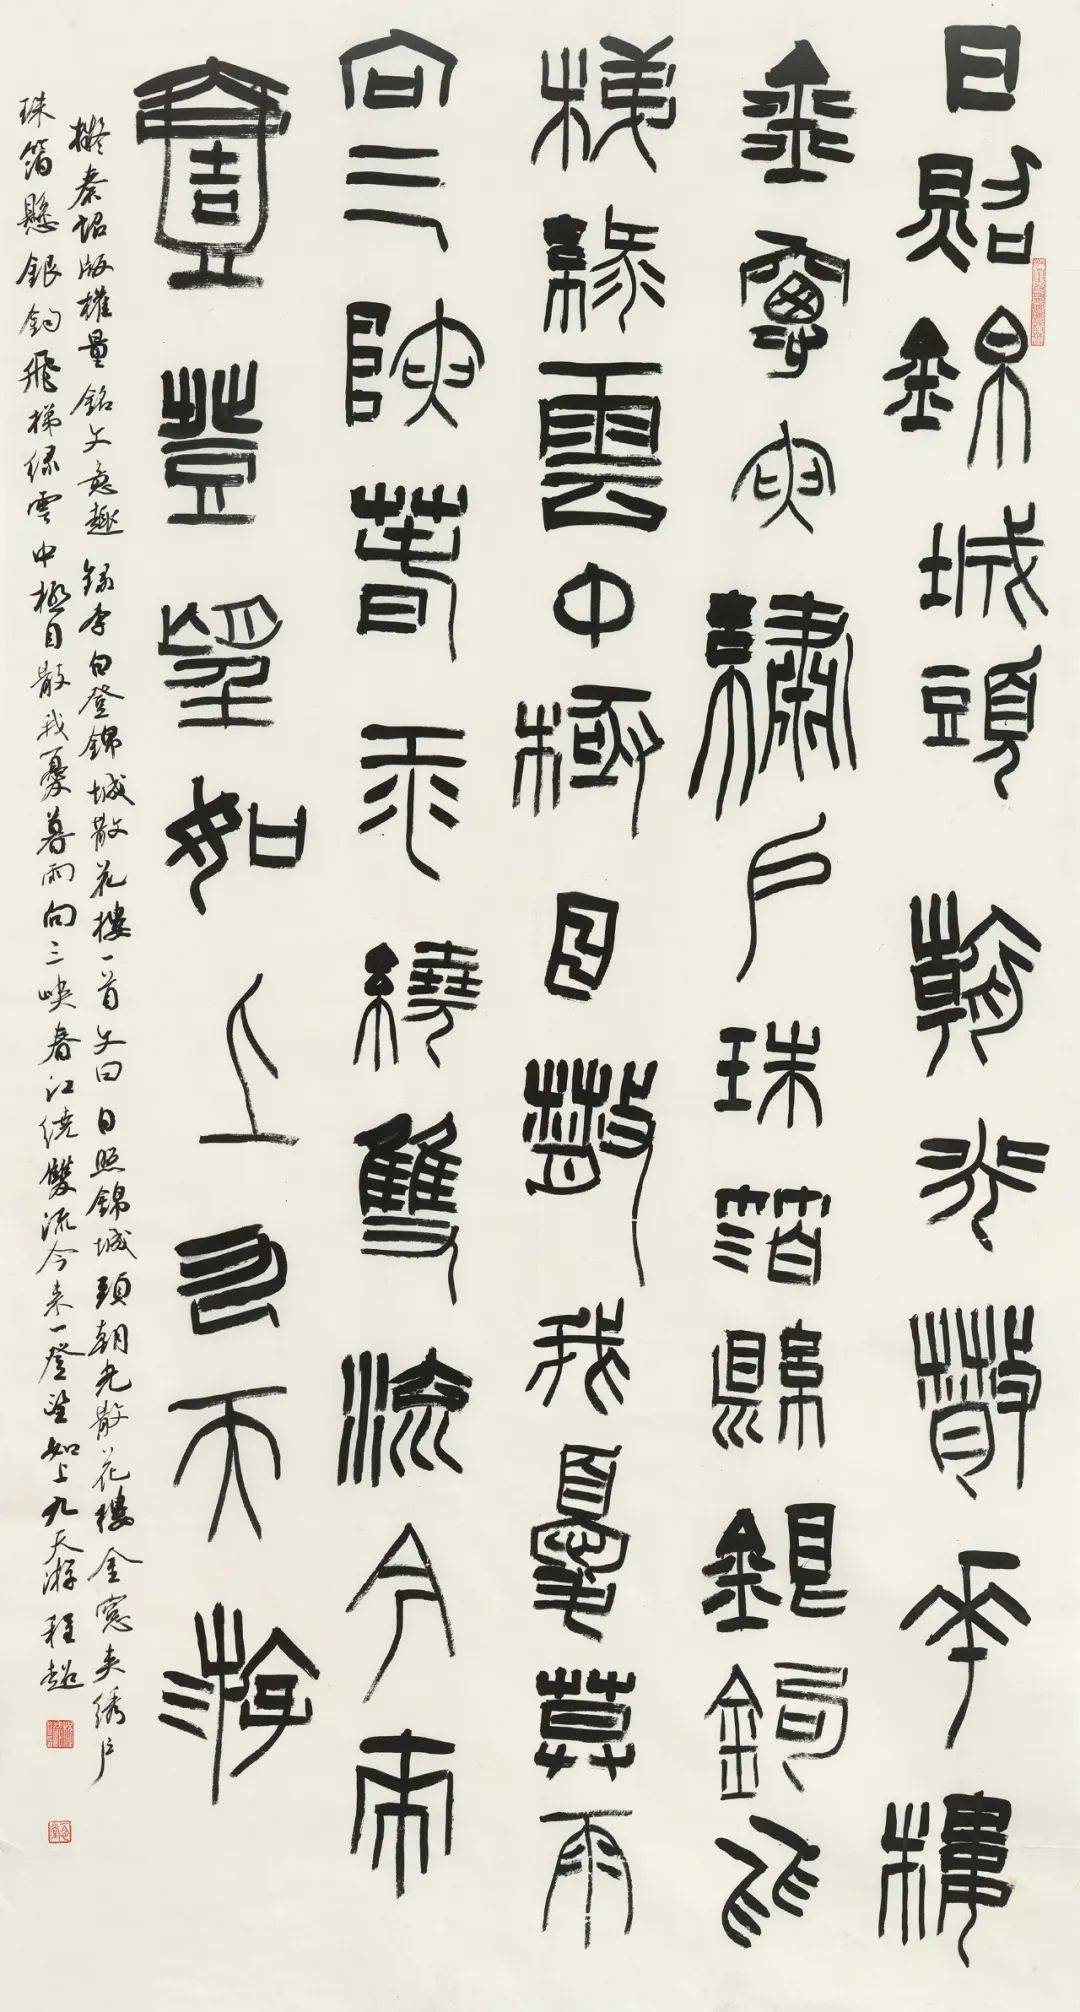 日照錦城頭朝光散花樓
金窗夾繡戶珠箔懸銀鉤飛
梯綠雲中極目散我憂暮雨
向三峽春江繞雙流今來
壹登望如上九天游
擬秦詔版權量銘文意趣錄李白登錦城散花樓一首文曰日照錦城頭朝光散花樓金窗夾绣户
珠箔懸銀鉤飛梯绿雲中極目散我憂暮雨向三峡春江绕雙流今来一登望如上九天游程超